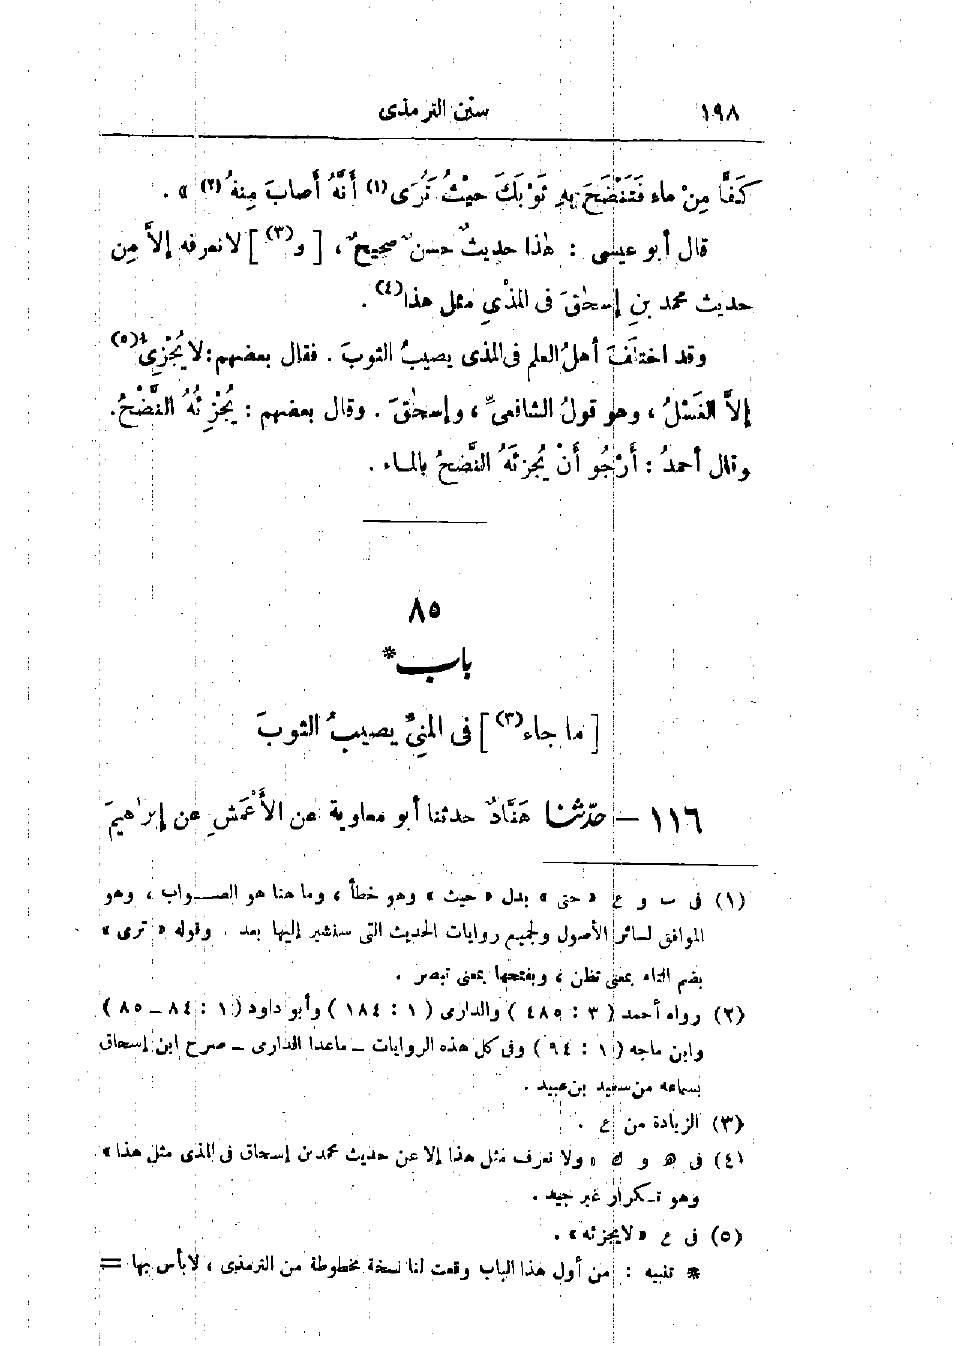 ١٩٨ سنن الترمذى
كَفًّا مِنْ ماء فَتَنْضَحَ بِهِ ثَوْبَكَ حيْثُ تُرَى (١) أَنَّهُ أصابَ مِنهُ (٢) » .
قال أبو عيسى : هٰذا حديثٌ حسنٌ صحيحٌ ، [ و (٣) ] لا نعرفه إلاَّ مِن
حديث محمد بنِ إسحٰقَ فى المذْىِ مثل هذا (٤) .
وقد اختلَفَ أهلُ العلم فى المذى يصيبُ الثوبَ . فقال بعضهم : لا يُجْزِىُٔ (٥)
إلاَّ الغَسْلُ ، وهو قولُ الشافعىِّ ، وإسحٰقَ . وقال بعضهم : يُجْزِئُهُ النَّضْحُ .
وقال أحمدُ : أَرْجُو أنْ يُجزئَهُ النَّضحُ بالمـاء .
٨٥
باب *
[ ما جاء (٣) ] فى المنىِّ يصيبُ الثوبَ
١١٦ — حدّثنا هَنَّادٌ حدثنا أبو معاوية عن الأَعْمَشِ عن إبراهيمَ
(١) فى ب و ع « حتى » بدل « حيث » وهو خطأ ، وما هنا هو الصـواب ، وهو
الموافق لسائر الأصول ولجميع روايات الحديث التى سنشير إليها بعد . وقوله « ترى »
بضم التاء بمعنى تظن ، وبفتحها بمعنى تبصر .
(٢) رواه أحمد ( ٣ : ٤٨٥ ) والدارمى ( ١ : ١٨٤ ) وأبو داود ( ١ : ٨٤ ــ ٨٥ )
وابن ماجه ( ١ : ٩٤ ) وفى كل هذه الروايات ــ ماعدا الدارمى ــ صرح ابن إسحاق
بسماعه من سعيد بن عبيد .
(٣) الزيادة من ع .
(٤) فى ﻫ و ك « ولا نعرف مثل هذا إلا عن حديث محمد بن إسحاق فى المذى مثل هذا »
وهو تـكرار غير جيد .
(٥) فى ع « لا يجزئه » .
* تنبيه : من أول هذا الباب وقعت لنا نسخة مخطوطة من الترمذى ، لا بأس بها =